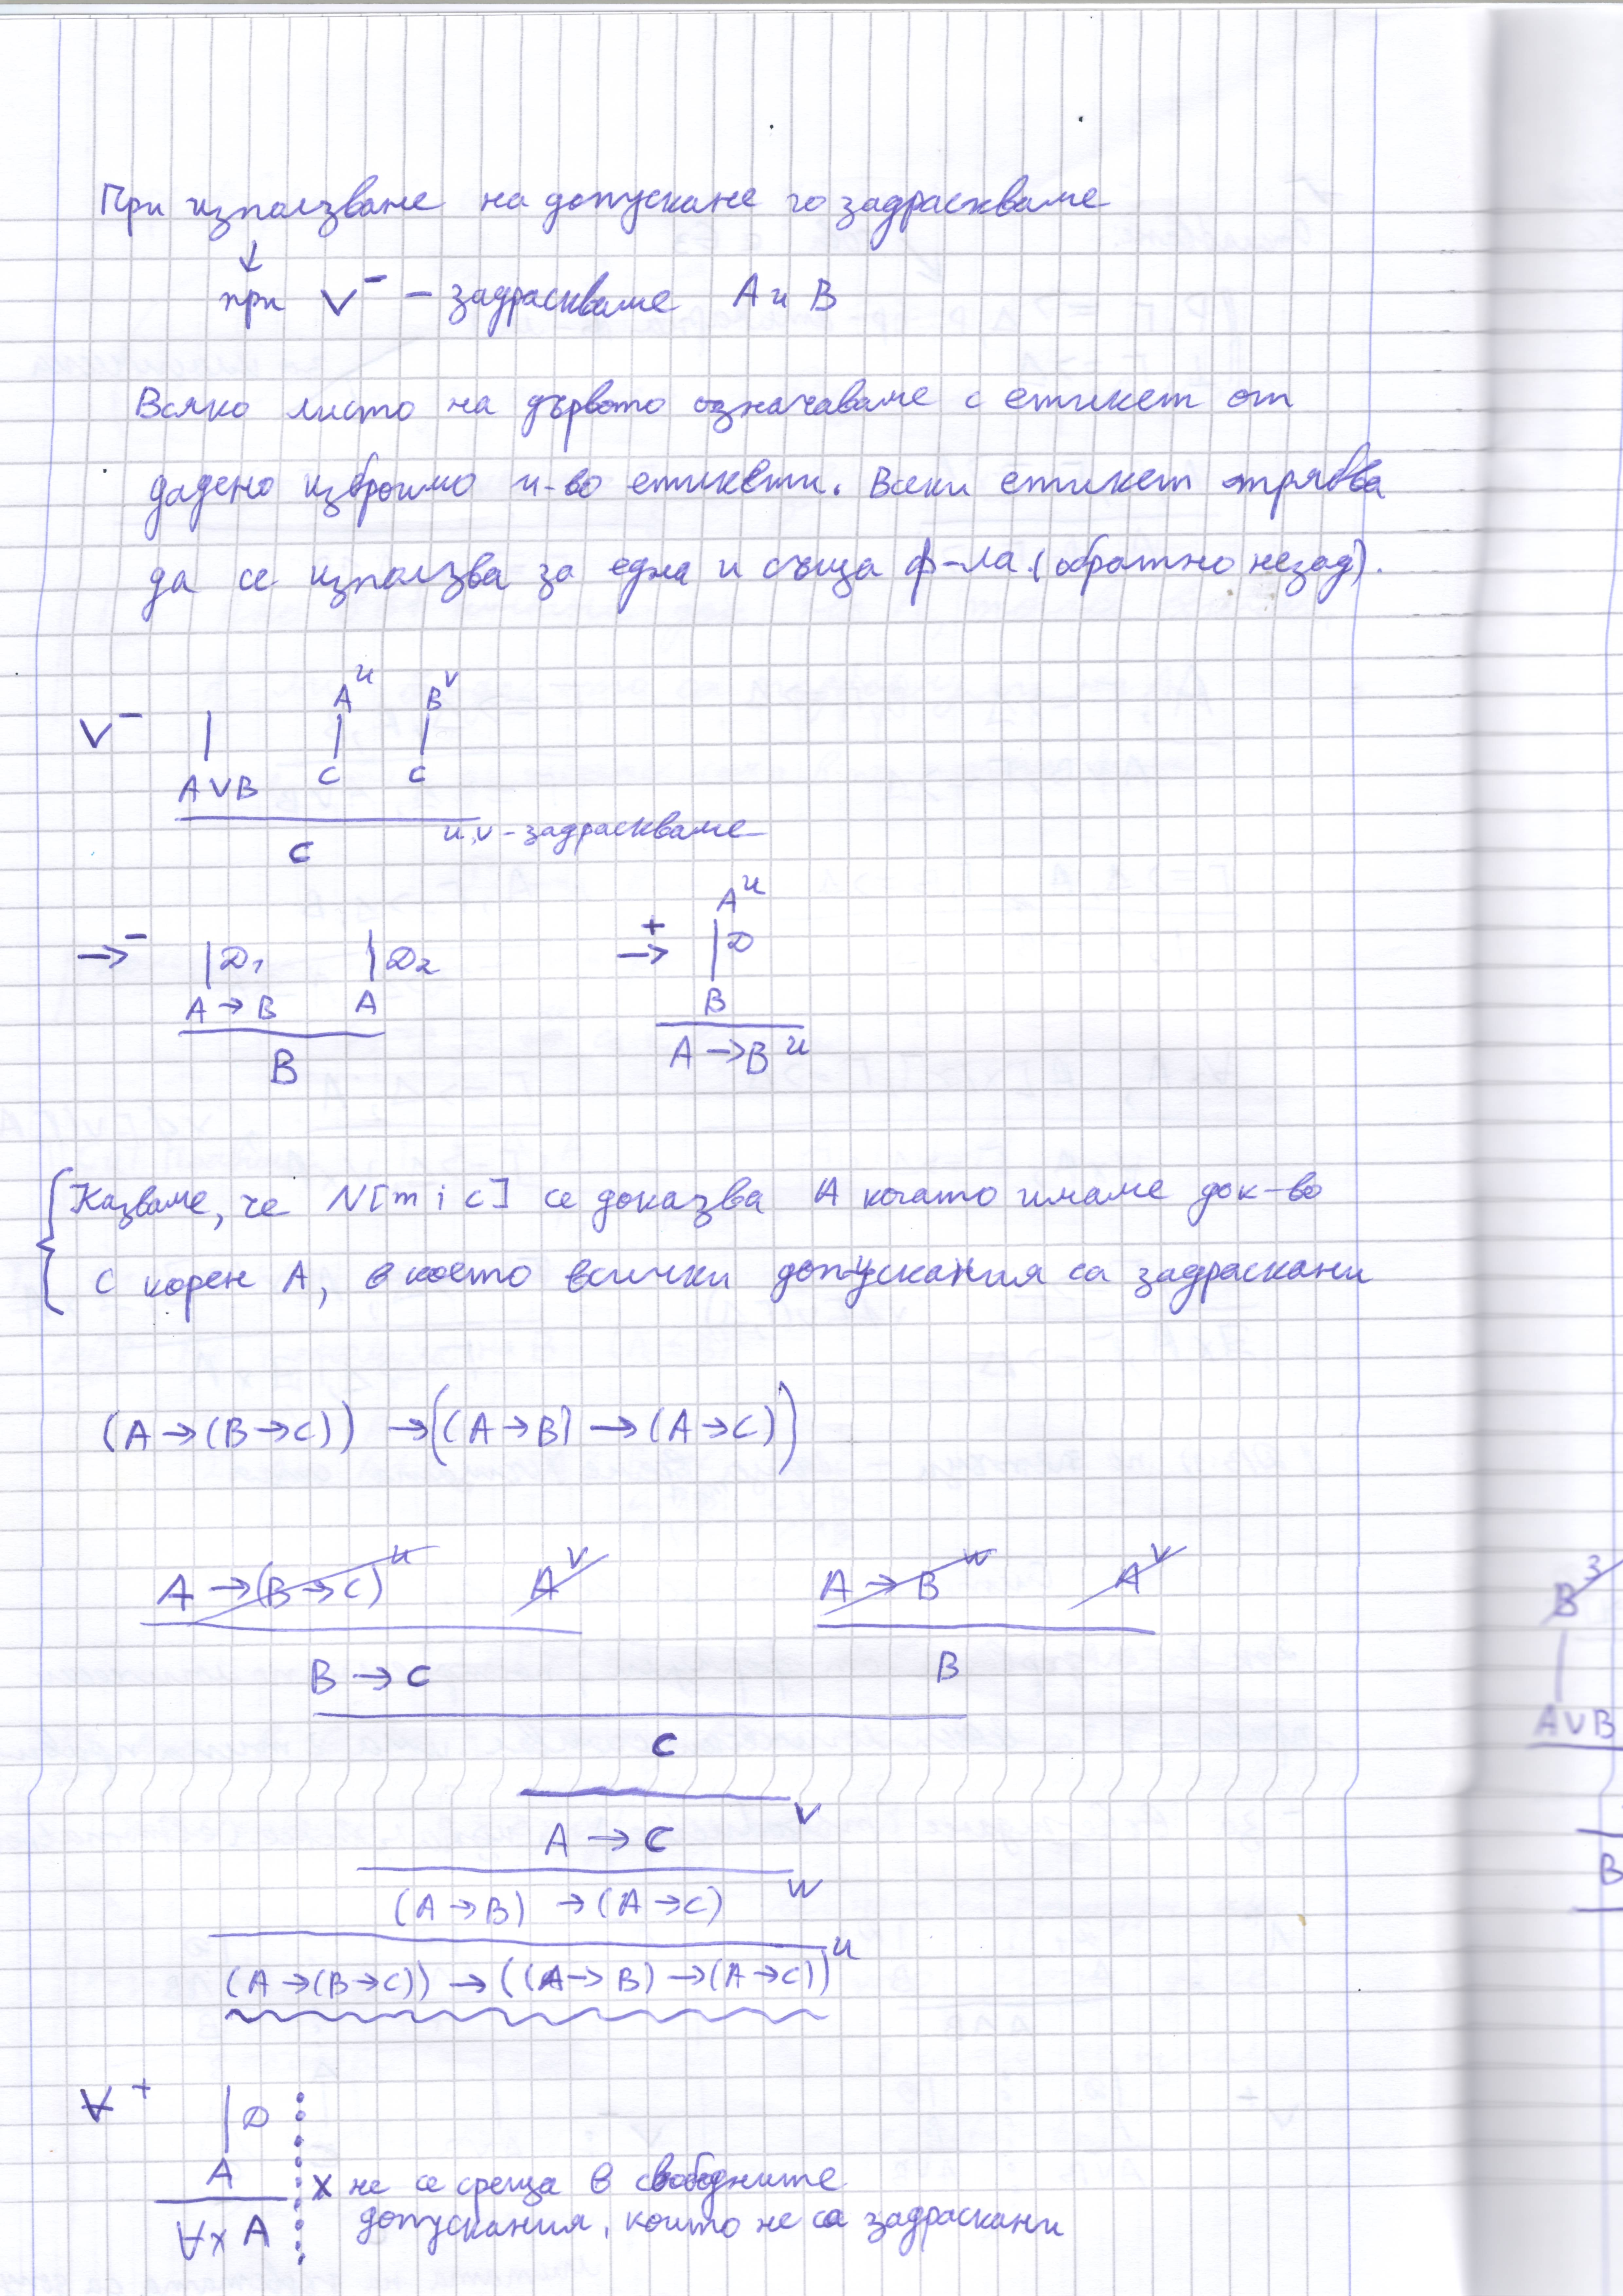 При използване на допускане го задраскваме
↓
при ∨⁻ – задраскваме A и B
Всяко листо на дървото означаваме с етикет от
дадено изброимо м-во етикети. Всеки етикет трябва
да се използва за една и съща ф-ла. (обратно незад).
Aᵘ Bᵛ
∨⁻ | | |
A∨B C C
C u,v - задраскваме
Aᵘ
→⁻ |D₁ |D₂ →⁺ |D
A→B A B
B A→B u
Казваме, че N[m i c] се доказва A когато имаме док-во
с корен A, в което всички допускания са задраскани
(A→(B→C)) →((A→B) →(A→C))
A→(B→C)ᵘ Aᵛ A→Bʷ Aᵛ
B→C B
C
v
A→C
w
(A→B) →(A→C)
u
(A→(B→C)) →((A→B) →(A→C))
∀⁺ |D
A x не се среща в свободните
∀x A допускания, които не са задраскани
B³
A∨B
B